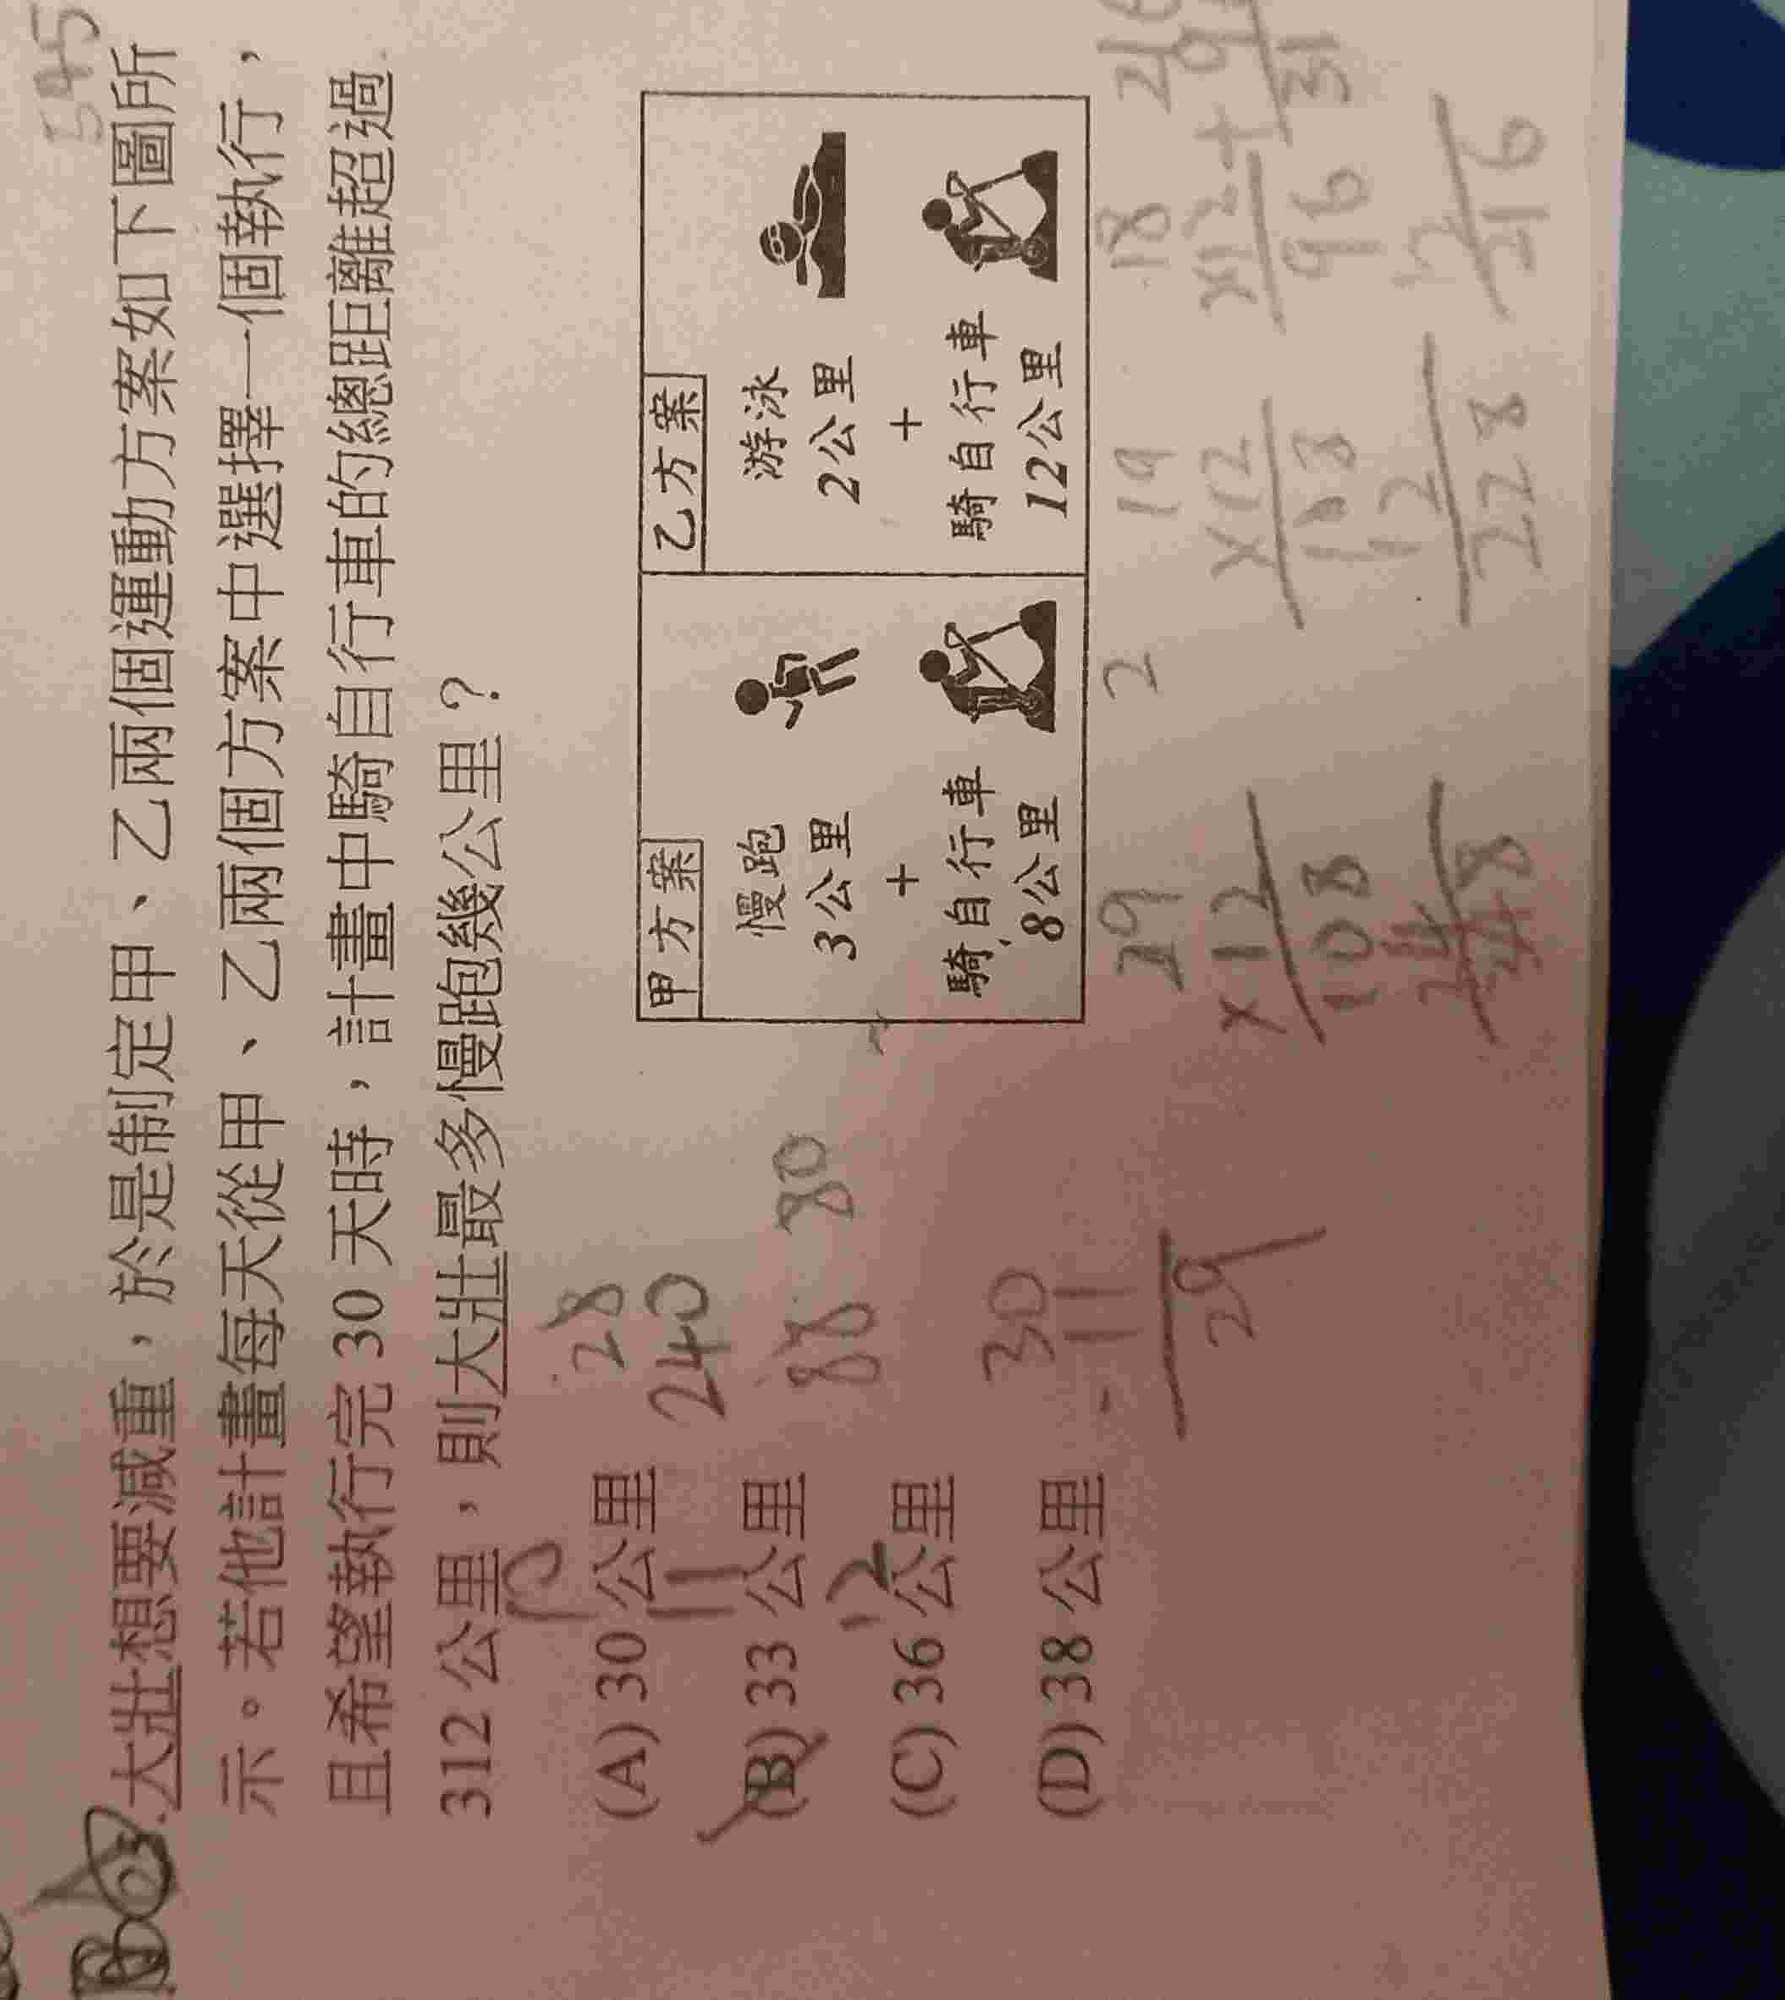 545
大壯想要減重，於是制定甲、乙兩個運動方案如下圖所
示。若他計畫每天從甲、乙兩個方案中選擇一個執行，
且希望執行完 30 天時，計畫中騎自行車的總距離超過
312 公里，則大壯最多慢跑幾公里？
10
(A) 30 公里
28
240
11
(B) 33 公里
88 80
12
(C) 36 公里
(D) 38 公里
30
- 11
29
甲方案
慢跑
3公里
+
騎自行車
8公里
乙方案
游泳
2公里
+
騎自行車
12公里
29
×12
108
2
19
×12
228
18
×12
96
31
16